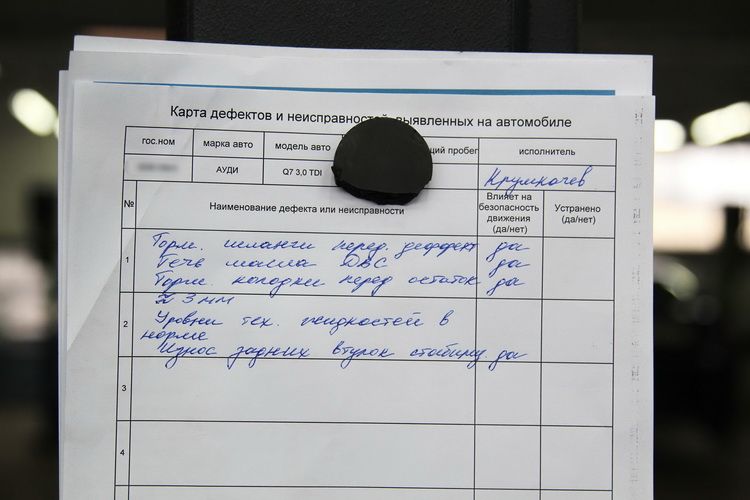 Карта дефектов и неисправностей, выявленных на автомобиле
гос.ном марка авто модель авто щий пробег исполнитель
АУДИ Q7 3,0 TDI Крумкачев
№ Наименование дефекта или неисправности Влияет на безопасность движения (да/нет) Устранено (да/нет)
1 Торм. шланги перед. деффект да
Течь масла ДВС да
Торм. колодки перед остаток да
≈ 3 мм
2 Уровни тех. жидкостей в
норме
Износ задних втулок стабилиз да
3
4